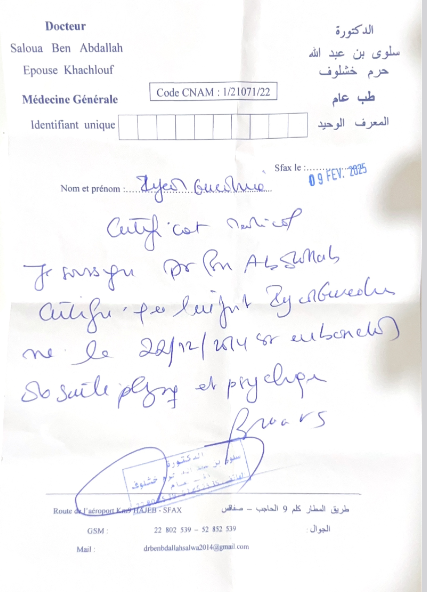 Docteur
Saloua Ben Abdallah
Epouse Khachlouf
Médecine Générale
Identifiant unique
Code CNAM : 1/21071/22
الدكتورة
سلوى بن عبد الله
حرم خشلوف
طب عام
المعرف الوحيد
Sfax le : 09 FEV. 2025
Nom et prénom :
Certificat medical
Je soussigné Dr Ben Abdallah
Certifie que l'enfant
né le 22/12/2014 est en bonne
santé physique et psychique
الدكتورة
سلوى بن عبد الله حرم خشلوف
Route de l'aéroport Km9 HAJEB - SFAX
طريق المطار كلم 9 الحاجب – صفاقس
GSM : 22 802 539 – 52 852 539 الجوال :
Mail : drbenbdallahsalwa2014@gmail.com